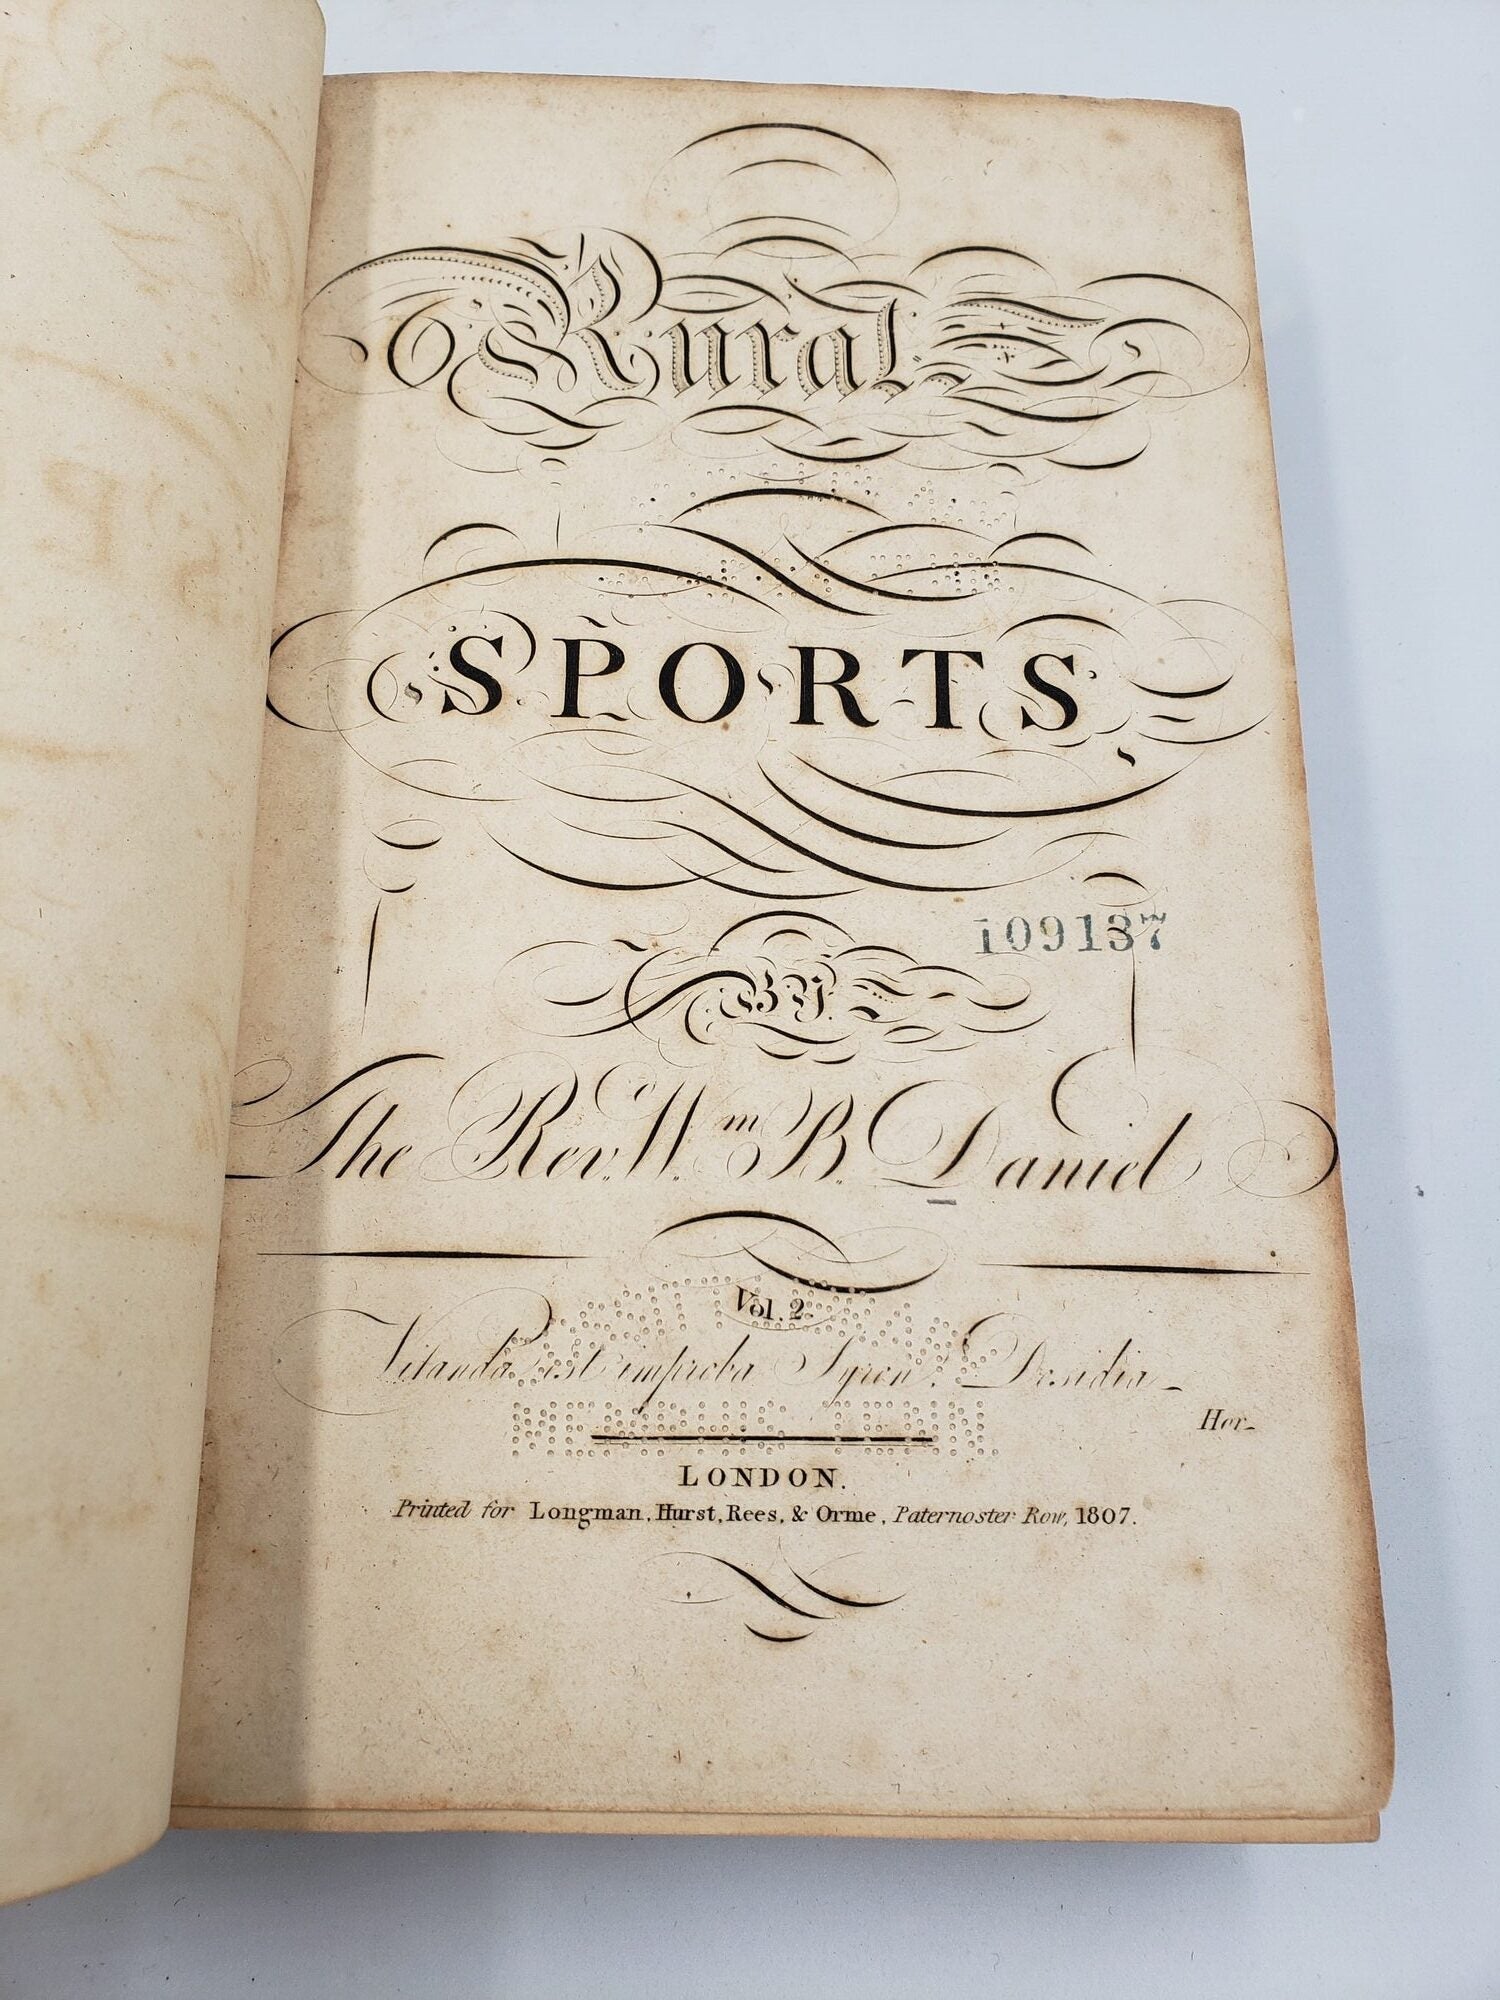 Rural
SPORTS
109137
BY
The Rev. Wm. B. Daniel
Vol. 2.
Vitanda est improba Syren. Desidia_
Hor_
MEMPHIS, TENN.
LONDON.
Printed for Longman, Hurst, Rees, & Orme, Paternoster Row, 1807.